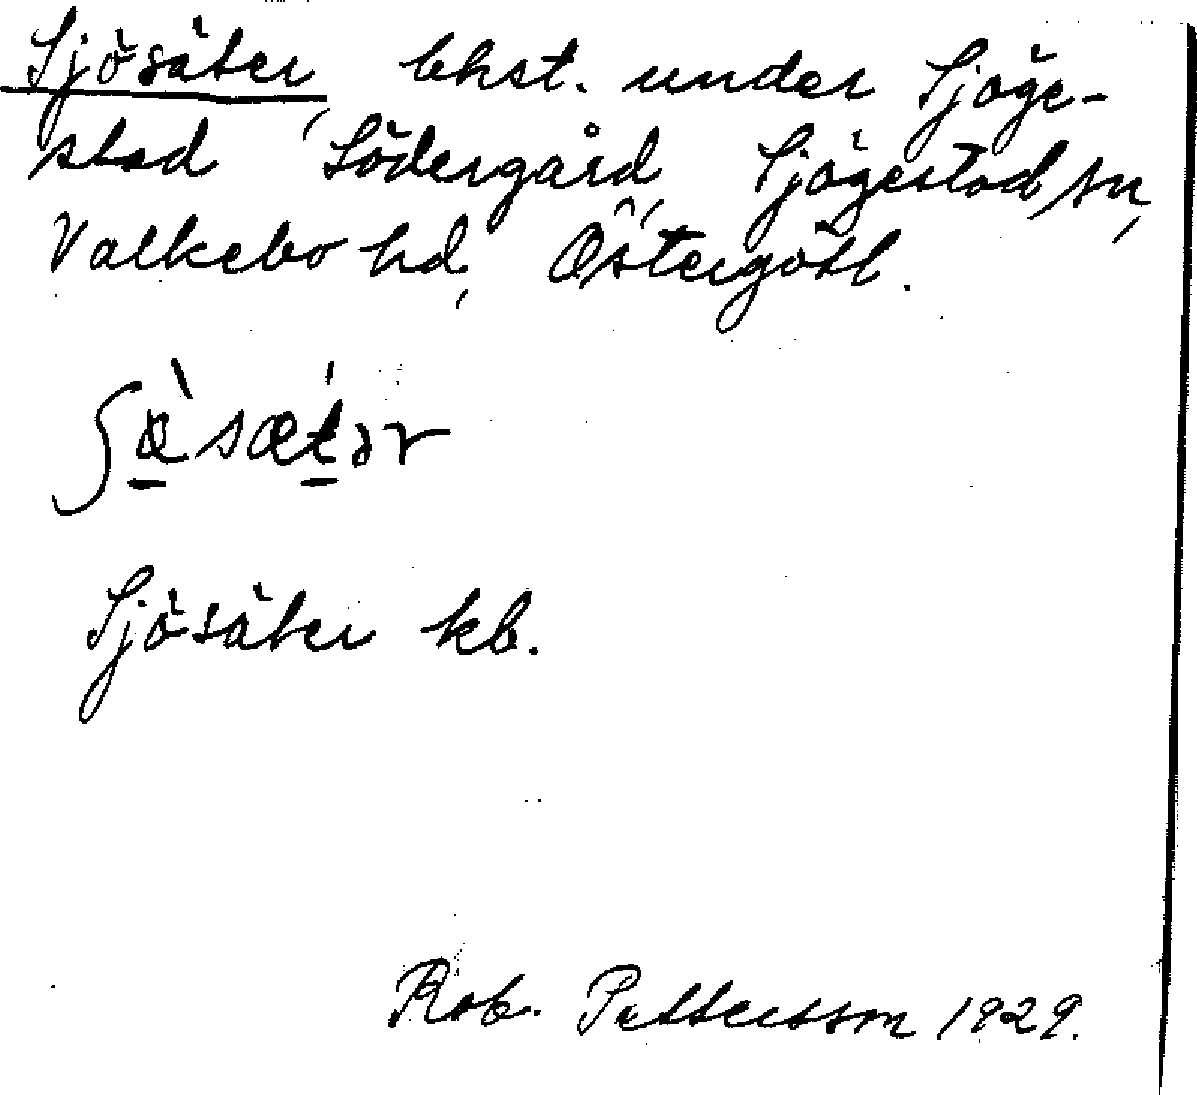 Sjösäter, bhst. under Sjöge-
stad Södergård, Sjögestad sn,
Valkebo hd, Östergötl.
ʃœ̀sætər
Sjösäter kb.
Rob. Pettersson 1929.